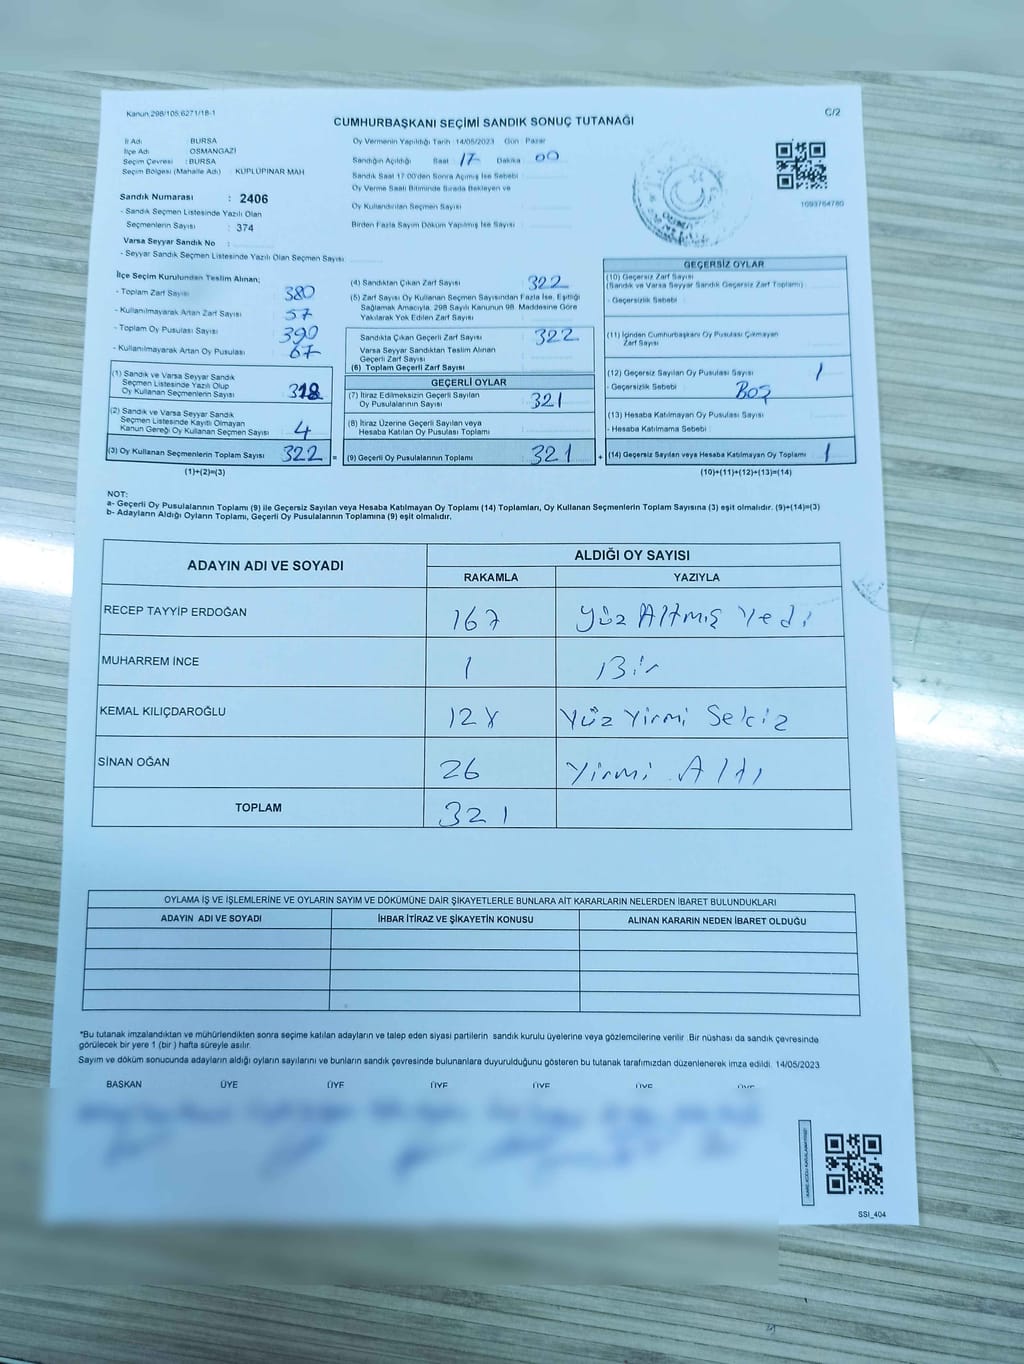 Kanun:298/105;6271/18-1
C/2
CUMHURBAŞKANI SEÇİMİ SANDIK SONUÇ TUTANAĞI
İl Adı : BURSA
İlçe Adı : OSMANGAZİ
Seçim Çevresi : BURSA
Seçim Bölgesi (Mahalle Adı) : KÜPLÜPINAR MAH
Sandık Numarası : 2406
- Sandık Seçmen Listesinde Yazılı Olan
Seçmenlerin Sayısı : 374
Varsa Seyyar Sandık No :
- Seyyar Sandık Seçmen Listesinde Yazılı Olan Seçmen Sayısı:
Oy Vermenin Yapıldığı Tarih :14/05/2023 Gün : Pazar
Sandığın Açıldığı Saat 17 Dakika 00
Sandık Saat 17:00'den Sonra Açılmış İse Sebebi
Oy Verme Saati Bitiminde Sırada Bekleyen ve
Oy Kullandırılan Seçmen Sayısı
Birden Fazla Sayım Döküm Yapılmış İse Sayısı :
1093764760
İlçe Seçim Kurulundan Teslim Alınan;
- Toplam Zarf Sayısı : 380
- Kullanılmayarak Artan Zarf Sayısı : 57
- Toplam Oy Pusulası Sayısı : 390
- Kullanılmayarak Artan Oy Pusulası : 67
(1) Sandık ve Varsa Seyyar Sandık
Seçmen Listesinde Yazılı Olup
Oy Kullanan Seçmenlerin Sayısı : 318
(2) Sandık ve Varsa Seyyar Sandık
Seçmen Listesinde Kayıtlı Olmayan
Kanun Gereği Oy Kullanan Seçmen Sayısı : 4
(3) Oy Kullanan Seçmenlerin Toplam Sayısı : 322
(1)+(2)=(3)
(4) Sandıktan Çıkan Zarf Sayısı : 322
(5) Zarf Sayısı Oy Kullanan Seçmen Sayısından Fazla İse, Eşitliği
Sağlamak Amacıyla, 298 Sayılı Kanunun 98. Maddesine Göre
Yakılarak Yok Edilen Zarf Sayısı
Sandıkta Çıkan Geçerli Zarf Sayısı : 322
Varsa Seyyar Sandıktan Teslim Alınan
Geçerli Zarf Sayısı
(6) Toplam Geçerli Zarf Sayısı
GEÇERLİ OYLAR
(7) İtiraz Edilmeksizin Geçerli Sayılan
Oy Pusulalarının Sayısı : 321
(8) İtiraz Üzerine Geçerli Sayılan veya
Hesaba Katılan Oy Pusulası Toplamı
= (9) Geçerli Oy Pusulalarının Toplamı : 321
GEÇERSİZ OYLAR
(10) Geçersiz Zarf Sayısı
(Sandık ve Varsa Seyyar Sandık Geçersiz Zarf Toplamı)
- Geçersizlik Sebebi :
(11) İçinden Cumhurbaşkanı Oy Pusulası Çıkmayan
Zarf Sayısı
(12) Geçersiz Sayılan Oy Pusulası Sayısı : 1
- Geçersizlik Sebebi : BOŞ
(13) Hesaba Katılmayan Oy Pusulası Sayısı
- Hesaba Katılmama Sebebi :
+ (14) Geçersiz Sayılan veya Hesaba Katılmayan Oy Toplamı : 1
(10)+(11)+(12)+(13)=(14)
NOT:
a- Geçerli Oy Pusulalarının Toplamı (9) ile Geçersiz Sayılan veya Hesaba Katılmayan Oy Toplamı (14) Toplamları, Oy Kullanan Seçmenlerin Toplam Sayısına (3) eşit olmalıdır. (9)+(14)=(3)
b- Adayların Aldığı Oyların Toplamı, Geçerli Oy Pusulalarının Toplamına (9) eşit olmalıdır.
ADAYIN ADI VE SOYADI
ALDIĞI OY SAYISI
RAKAMLA YAZIYLA
RECEP TAYYİP ERDOĞAN 167 Yüz Altmış Yedi
MUHARREM İNCE 1 Bir
KEMAL KILIÇDAROĞLU 128 Yüz Yirmi Sekiz
SİNAN OĞAN 26 Yirmi Altı
TOPLAM 321
OYLAMA İŞ VE İŞLEMLERİNE VE OYLARIN SAYIM VE DÖKÜMÜNE DAİR ŞİKAYETLERLE BUNLARA AİT KARARLARIN NELERDEN İBARET BULUNDUKLARI
ADAYIN ADI VE SOYADI İHBAR İTİRAZ VE ŞİKAYETİN KONUSU ALINAN KARARIN NEDEN İBARET OLDUĞU
*Bu tutanak imzalandıktan ve mühürlendikten sonra seçime katılan adayların ve talep eden siyasi partilerin sandık kurulu üyelerine veya gözlemcilerine verilir. Bir nüshası da sandık çevresinde
görülecek bir yere 1 (bir ) hafta süreyle asılır.
Sayım ve döküm sonucunda adayların aldığı oyların sayılarını ve bunların sandık çevresinde bulunanlara duyurulduğunu gösteren bu tutanak tarafımızdan düzenlenerek imza edildi. 14/05/2023
BAŞKAN ÜYE ÜYE ÜYE ÜYE ÜYE ÜYE
SSI_404